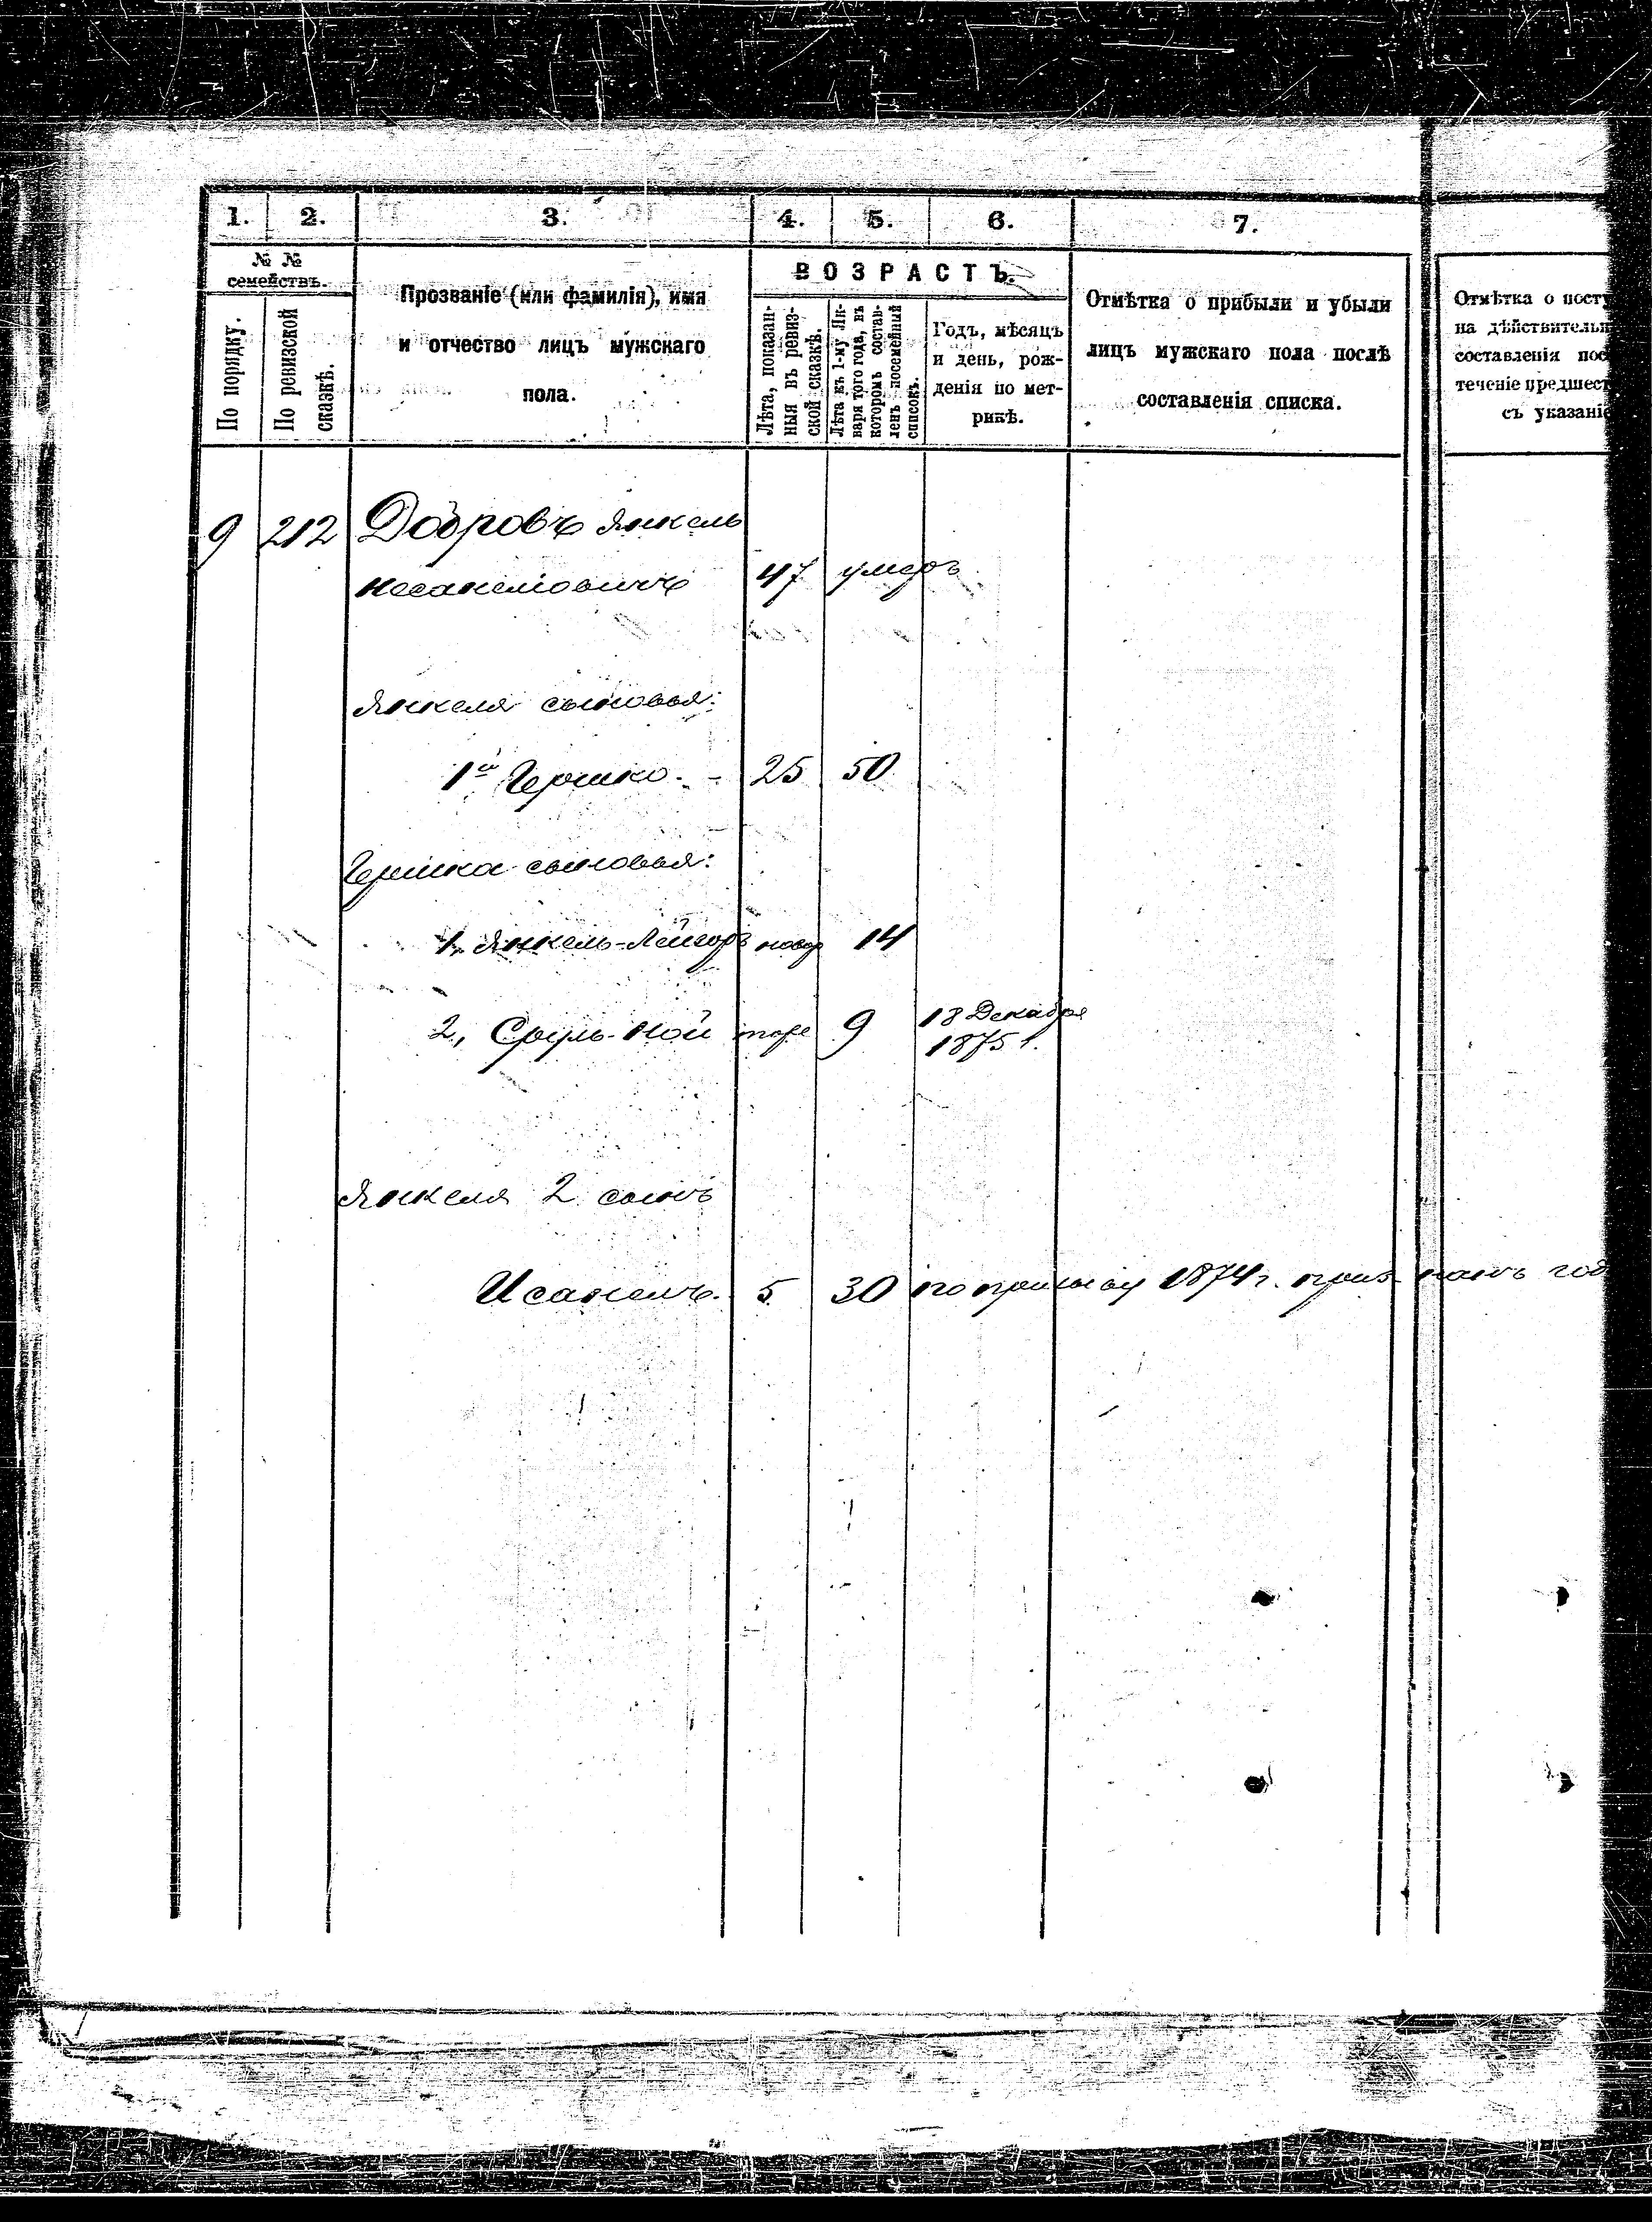 1. 2. 3. 4. 5. 6. 7.
№ №
семействъ.
По порядку.
По ревизской
сказкѣ.
Прозваніе (или фамилія), имя
и отчество лицъ мужскаго
пола.
ВОЗРАСТЪ.
Лѣта, показан-
ныя въ ревиз-
ской сказкѣ.
Лѣта къ 1-му Ян-
варя того года, въ
которомъ состав-
ленъ посемейный
списокъ.
Годъ, мѣсяцъ
и день, рож-
денія по мет-
рикѣ.
Отмѣтка о прибыли и убыли
лицъ мужскаго пола послѣ
составленія списка.
Отмѣтка о посту
на дѣйствительн
составленія пос
теченіе предшест
съ указаніе
9 212 Добровъ Янкель
47 умеръ
Янкеля сыновья:
1й Гершко. - 25 50
Гершка сыновья:
1, Янкель-Лейзоръ новор 14
2, Сруль-Ной тоже 9 18 Декабря
1875 г.
Янкеля 2 сынъ
5 30 по призыву 1874 г. признанъ год